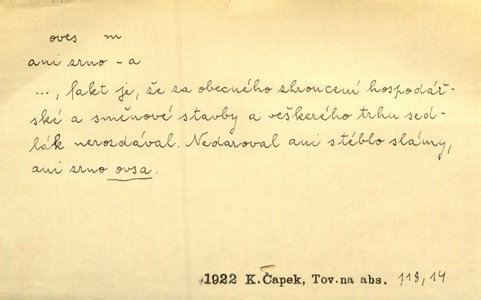 oves m
ani zrno -a
..., fakt je, že za obecného zhroucení hospodář-
ské a směnové stavby a veškerého trhu sed-
lák nerozdával. Nedaroval ani stéblo slámy,
ani zrno ovsa.
1922 K.Čapek, Tov.na abs. 118,14